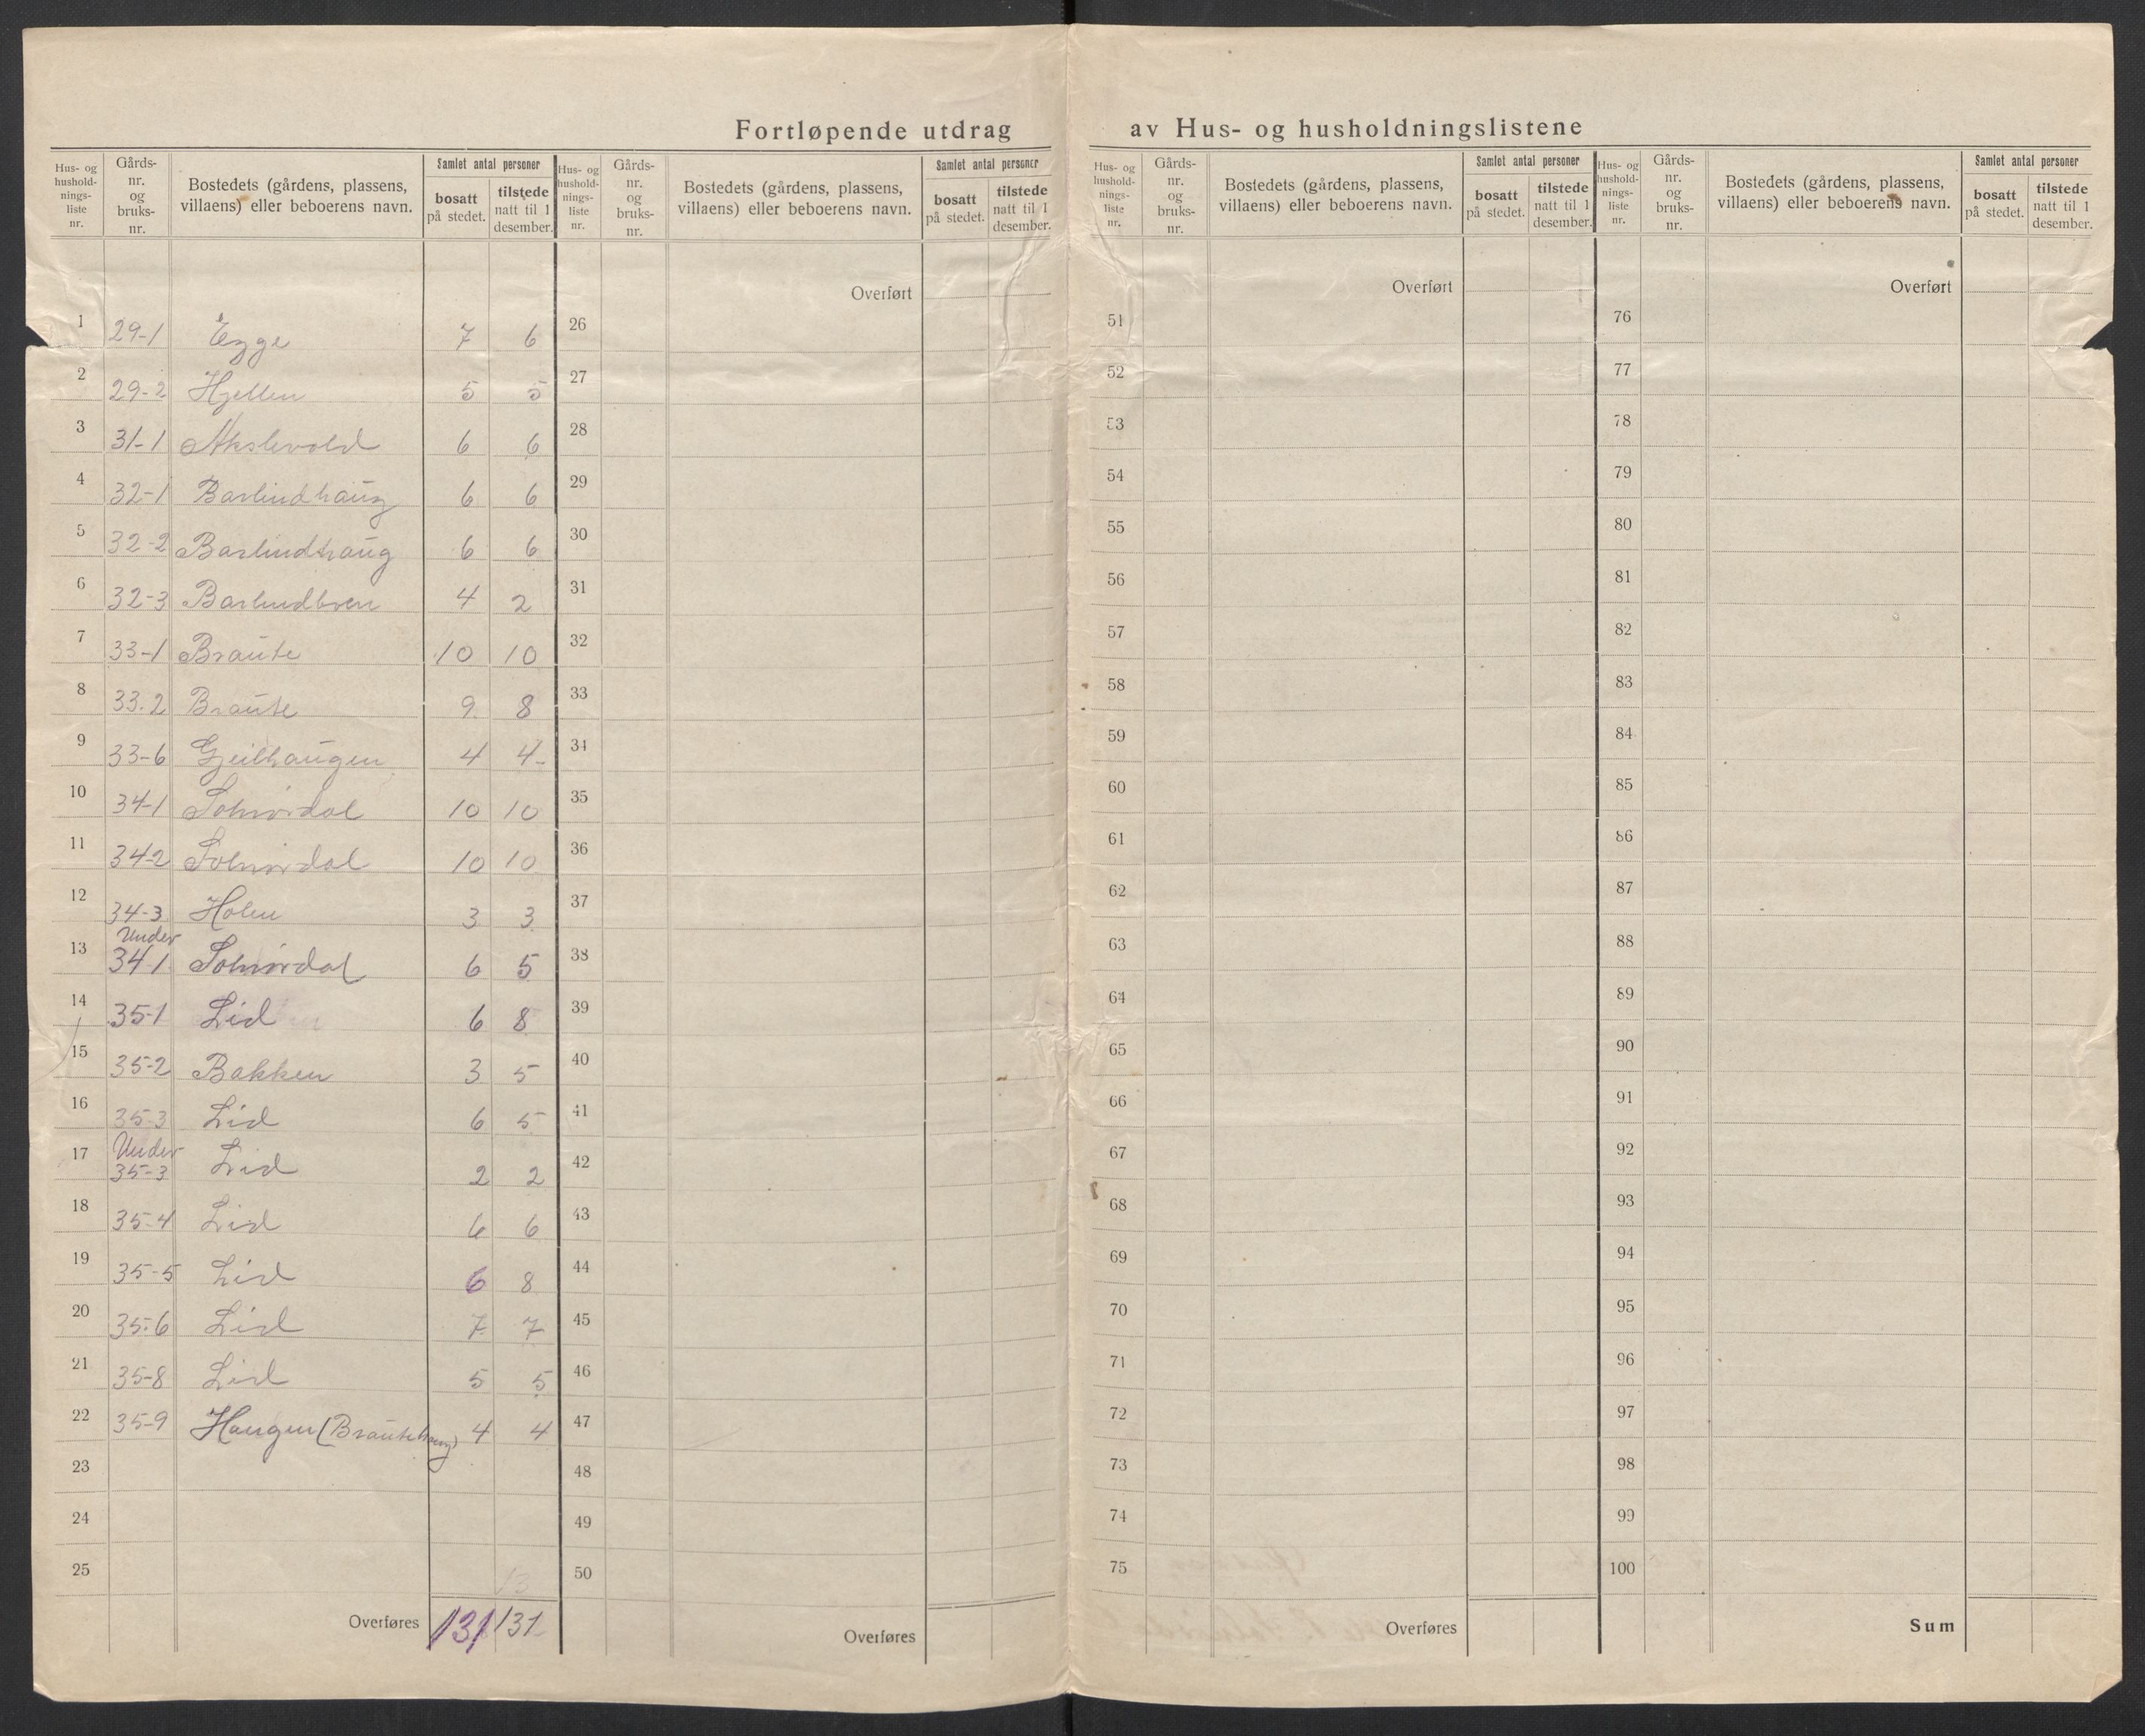 Fortløpende utdrag av Hus- og husholdningslistene
Hus- og hushold-nings-liste nr. | Gårds-nr. og bruks-nr. | Bostedets (gårdens, plassens, villaens) eller beboerens navn. | Samlet antal personer | bosatt på stedet. | tilstede natt til 1 desember.
Hus- og hushold-nings-liste nr. | Gårds-nr. og bruks-nr. | Bostedets (gårdens, plassens, villaens) eller beboerens navn. | Samlet antal personer | bosatt på stedet. | tilstede natt til 1 desember.
Hus- og hushold-nings-liste nr. | Gårds-nr. og bruks-nr. | Bostedets (gårdens, plassens, villaens) eller beboerens navn. | Samlet antal personer | bosatt på stedet. | tilstede natt til 1 desember.
Hus- og hushold-nings-liste nr. | Gårds-nr. og bruks-nr. | Bostedets (gårdens, plassens, villaens) eller beboerens navn. | Samlet antal personer | bosatt på stedet. | tilstede natt til 1 desember.
1 29-1 Egge 7 6
2 29-2 Hjellen 5 5
3 31-1 Akslevold 6 6
4 32-1 Barlindhaug 6 6
5 32-2 Barlindhaug 6 6
6 32-3 4 2
7 33-1 Braute 10 10
8 33.2 Braute 9 8
9 33-6 Gjeilhaugen 4 4
10 34-1 Solnørdal 10 10
11 34-2 Solnørdal 10 10
12 34-3 Holen 3 3
13 Under 34-1 Solnørdal 6 5
14 35-1 Lid 6 8
15 35-2 Bakken 3 5
16 35-3 Lid 6 5
17 Under 35-3 Lid 2 2
18 35-4 Lid 6 6
19 35-5 Lid 6 8
20 35-6 Lid 7 7
21 35-8 Lid 5 5
22 35-9 Haugen (Brautehaug) 4 4
23
24
25
Overføres 131 131
Overført
26
27
28
29
30
31
32
33
34
35
36
37
38
39
40
41
42
43
44
45
46
47
48
49
50
Overføres
Overført
51
52
53
54
55
56
57
58
59
60
61
62
63
64
65
66
67
68
69
70
71
72
73
74
75
Overføres
Overført
76
77
78
79
80
81
82
83
84
85
86
87
88
89
90
91
92
93
94
95
96
97
98
99
100
Sum